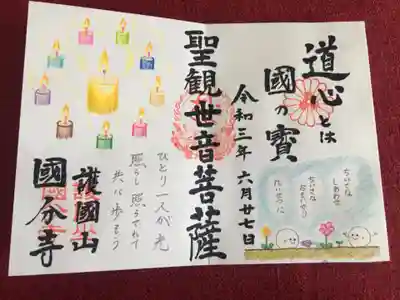 道心とは
國の寶
令和三年六月廿七日
ちいさな
しあわせ
ちいさな
おもいやり
たいせつに
聖観世音菩薩
ひとり一人が光
照らし照らされて
共に歩もう
護國山
國分寺